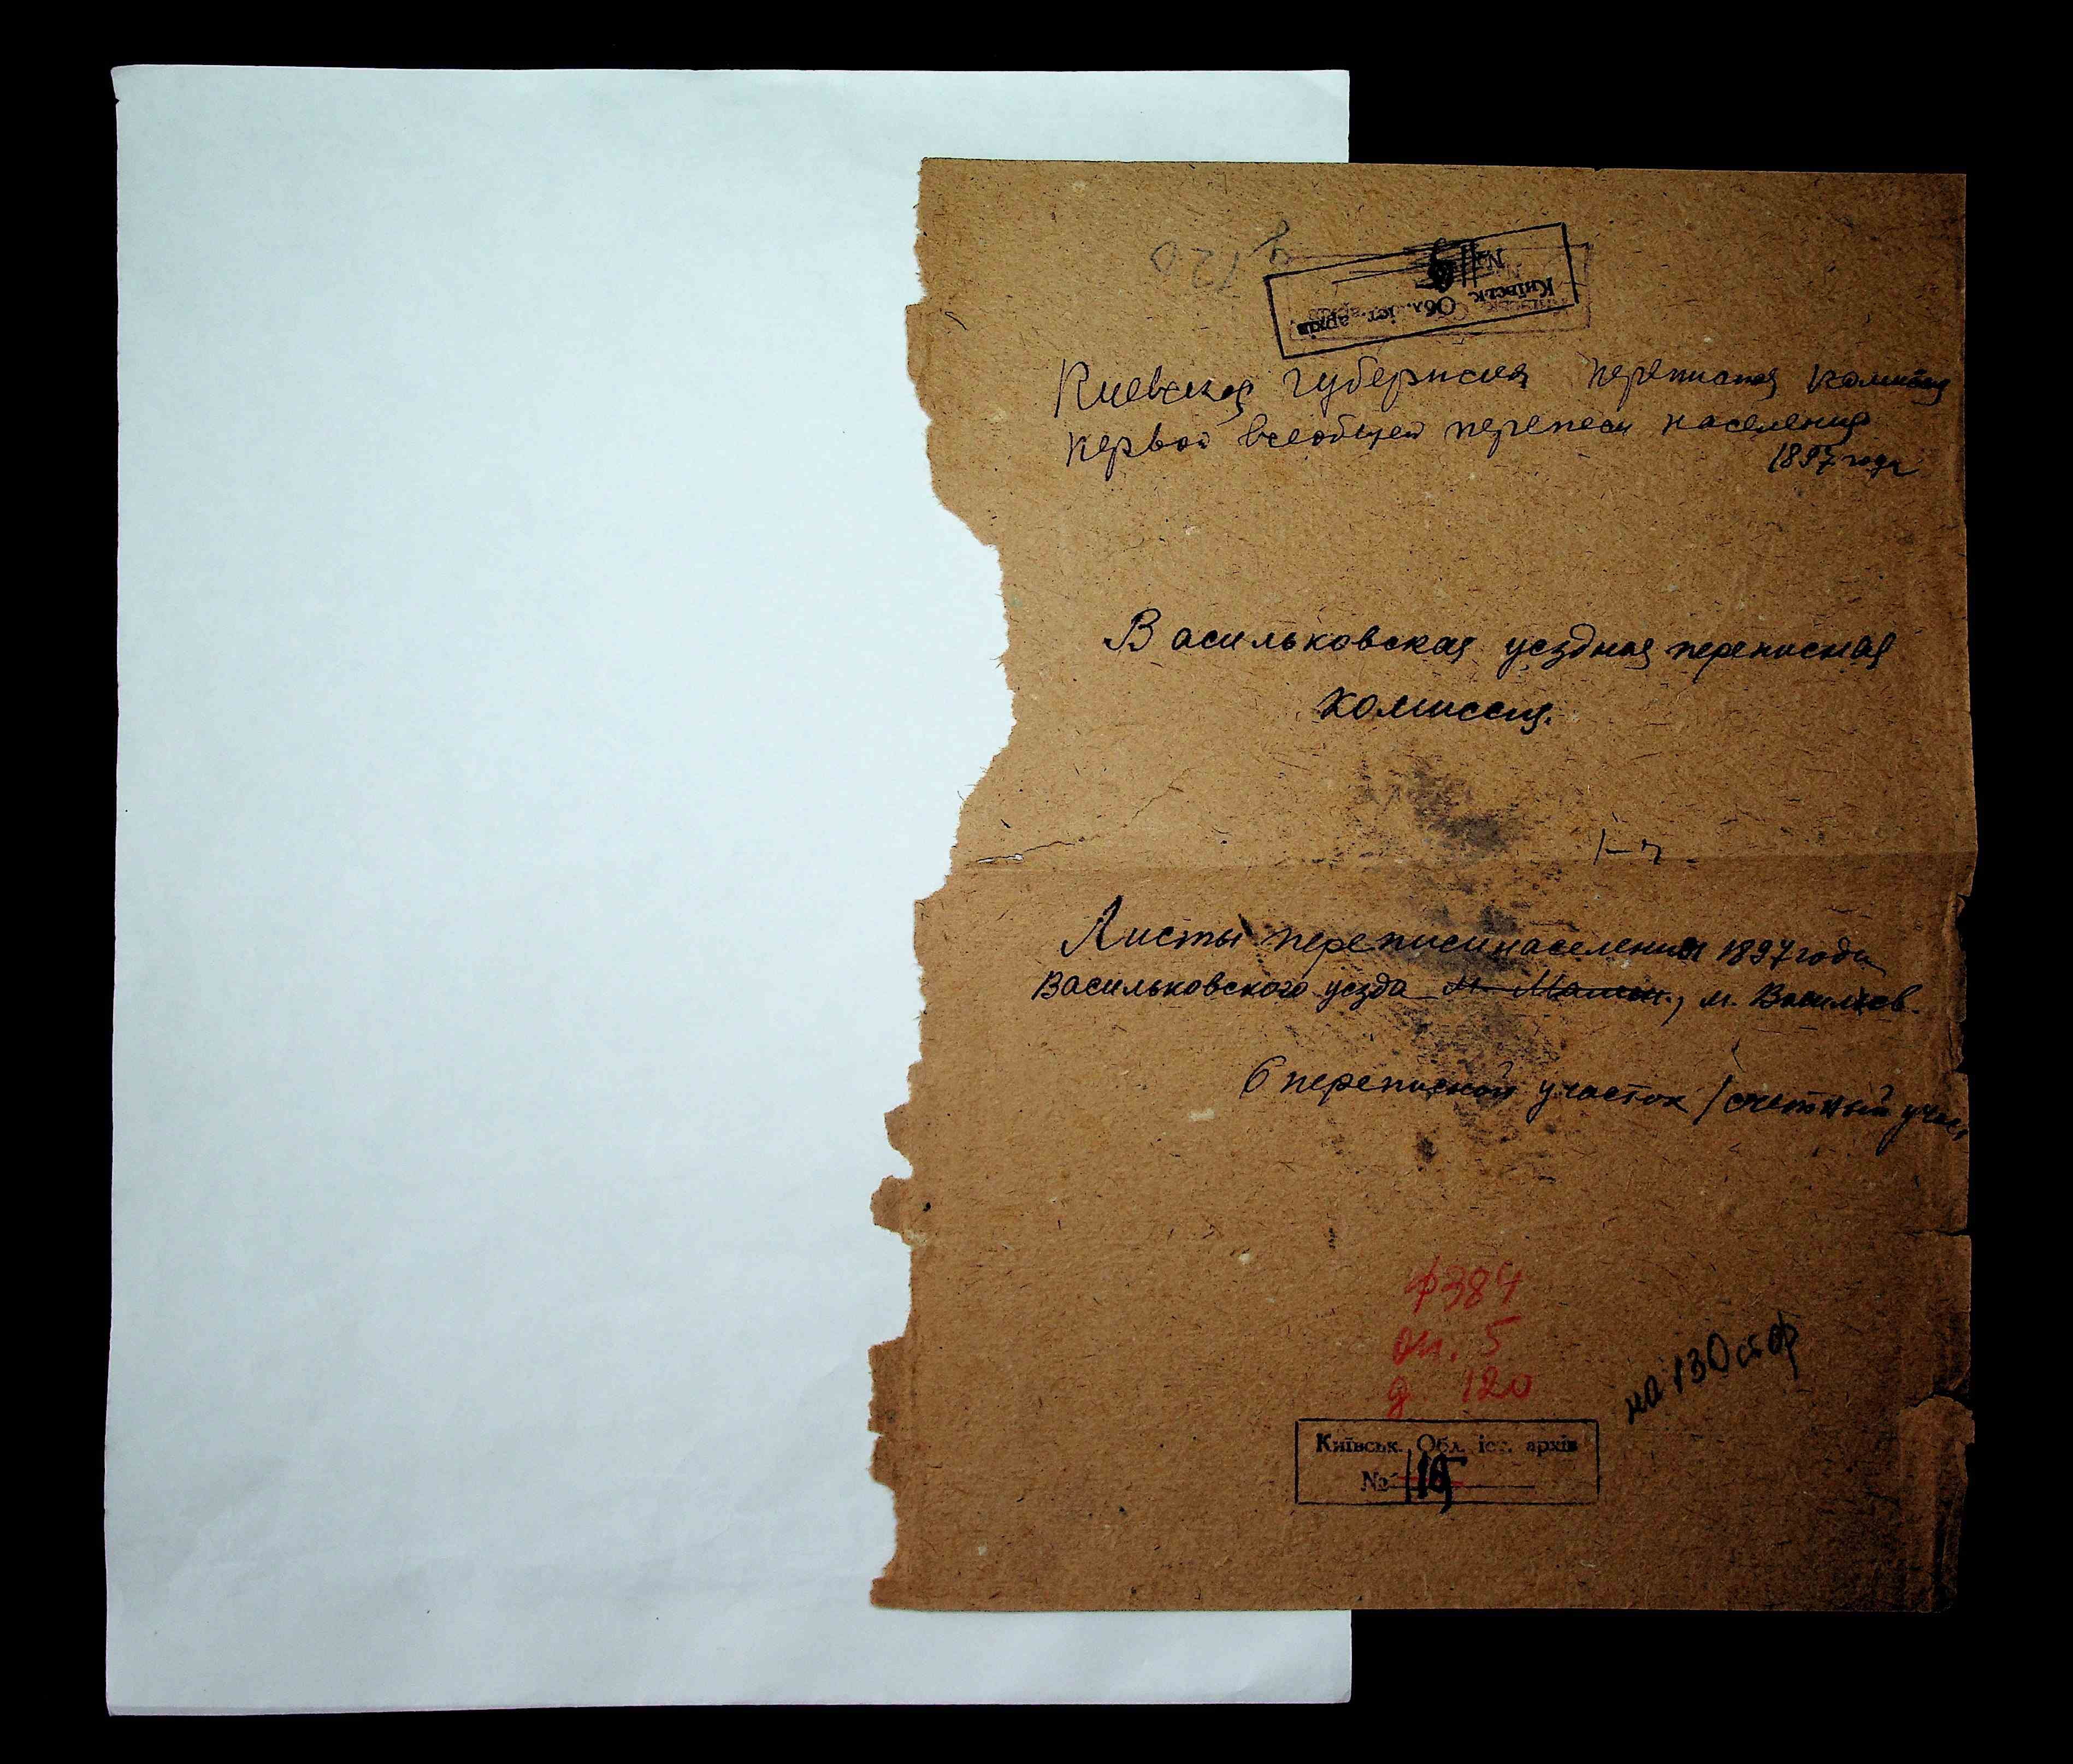 д 120
№
Київськ. Обл. іст. архів
Киевская губернская переписная комисия
первой всеобщей переписи населения
1897 года
Васильковская уездная переписная
комиссия.
Листы переписи населения 1897 года
Васильковского уезда м. , м. Васильков.
6 переписной участок 1 счетный учас
ф 384
оп. 5
д. 120
на 130 стр
Київськ. Обл. іст. архів
№ 115